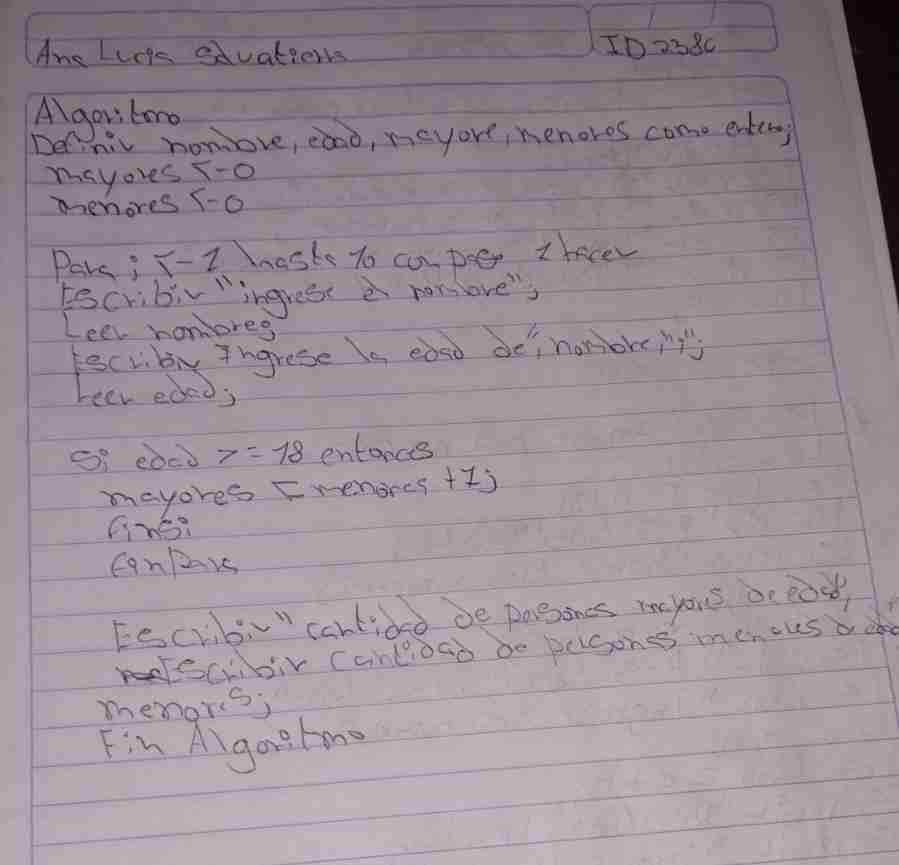 Ana Lucia
ID 238C
Algoritmo
Definir nombre, edad, mayore, menores como entero;
mayores <-0
menores <-0
Para i <-1 hasta 10 con paso 1 hacer
Escribir "ingrese el nombre";
Leer nombre;
Escribir Ingrese la edad de", nombre,":";
Leer edad;
Si edad >= 18 entonces
mayores <- menores +1;
finsi
finPara
Escribir" cantidad de personas mayores de edad,
Escribir Cantidad de personas menores de
menores;
Fin Algoritmo